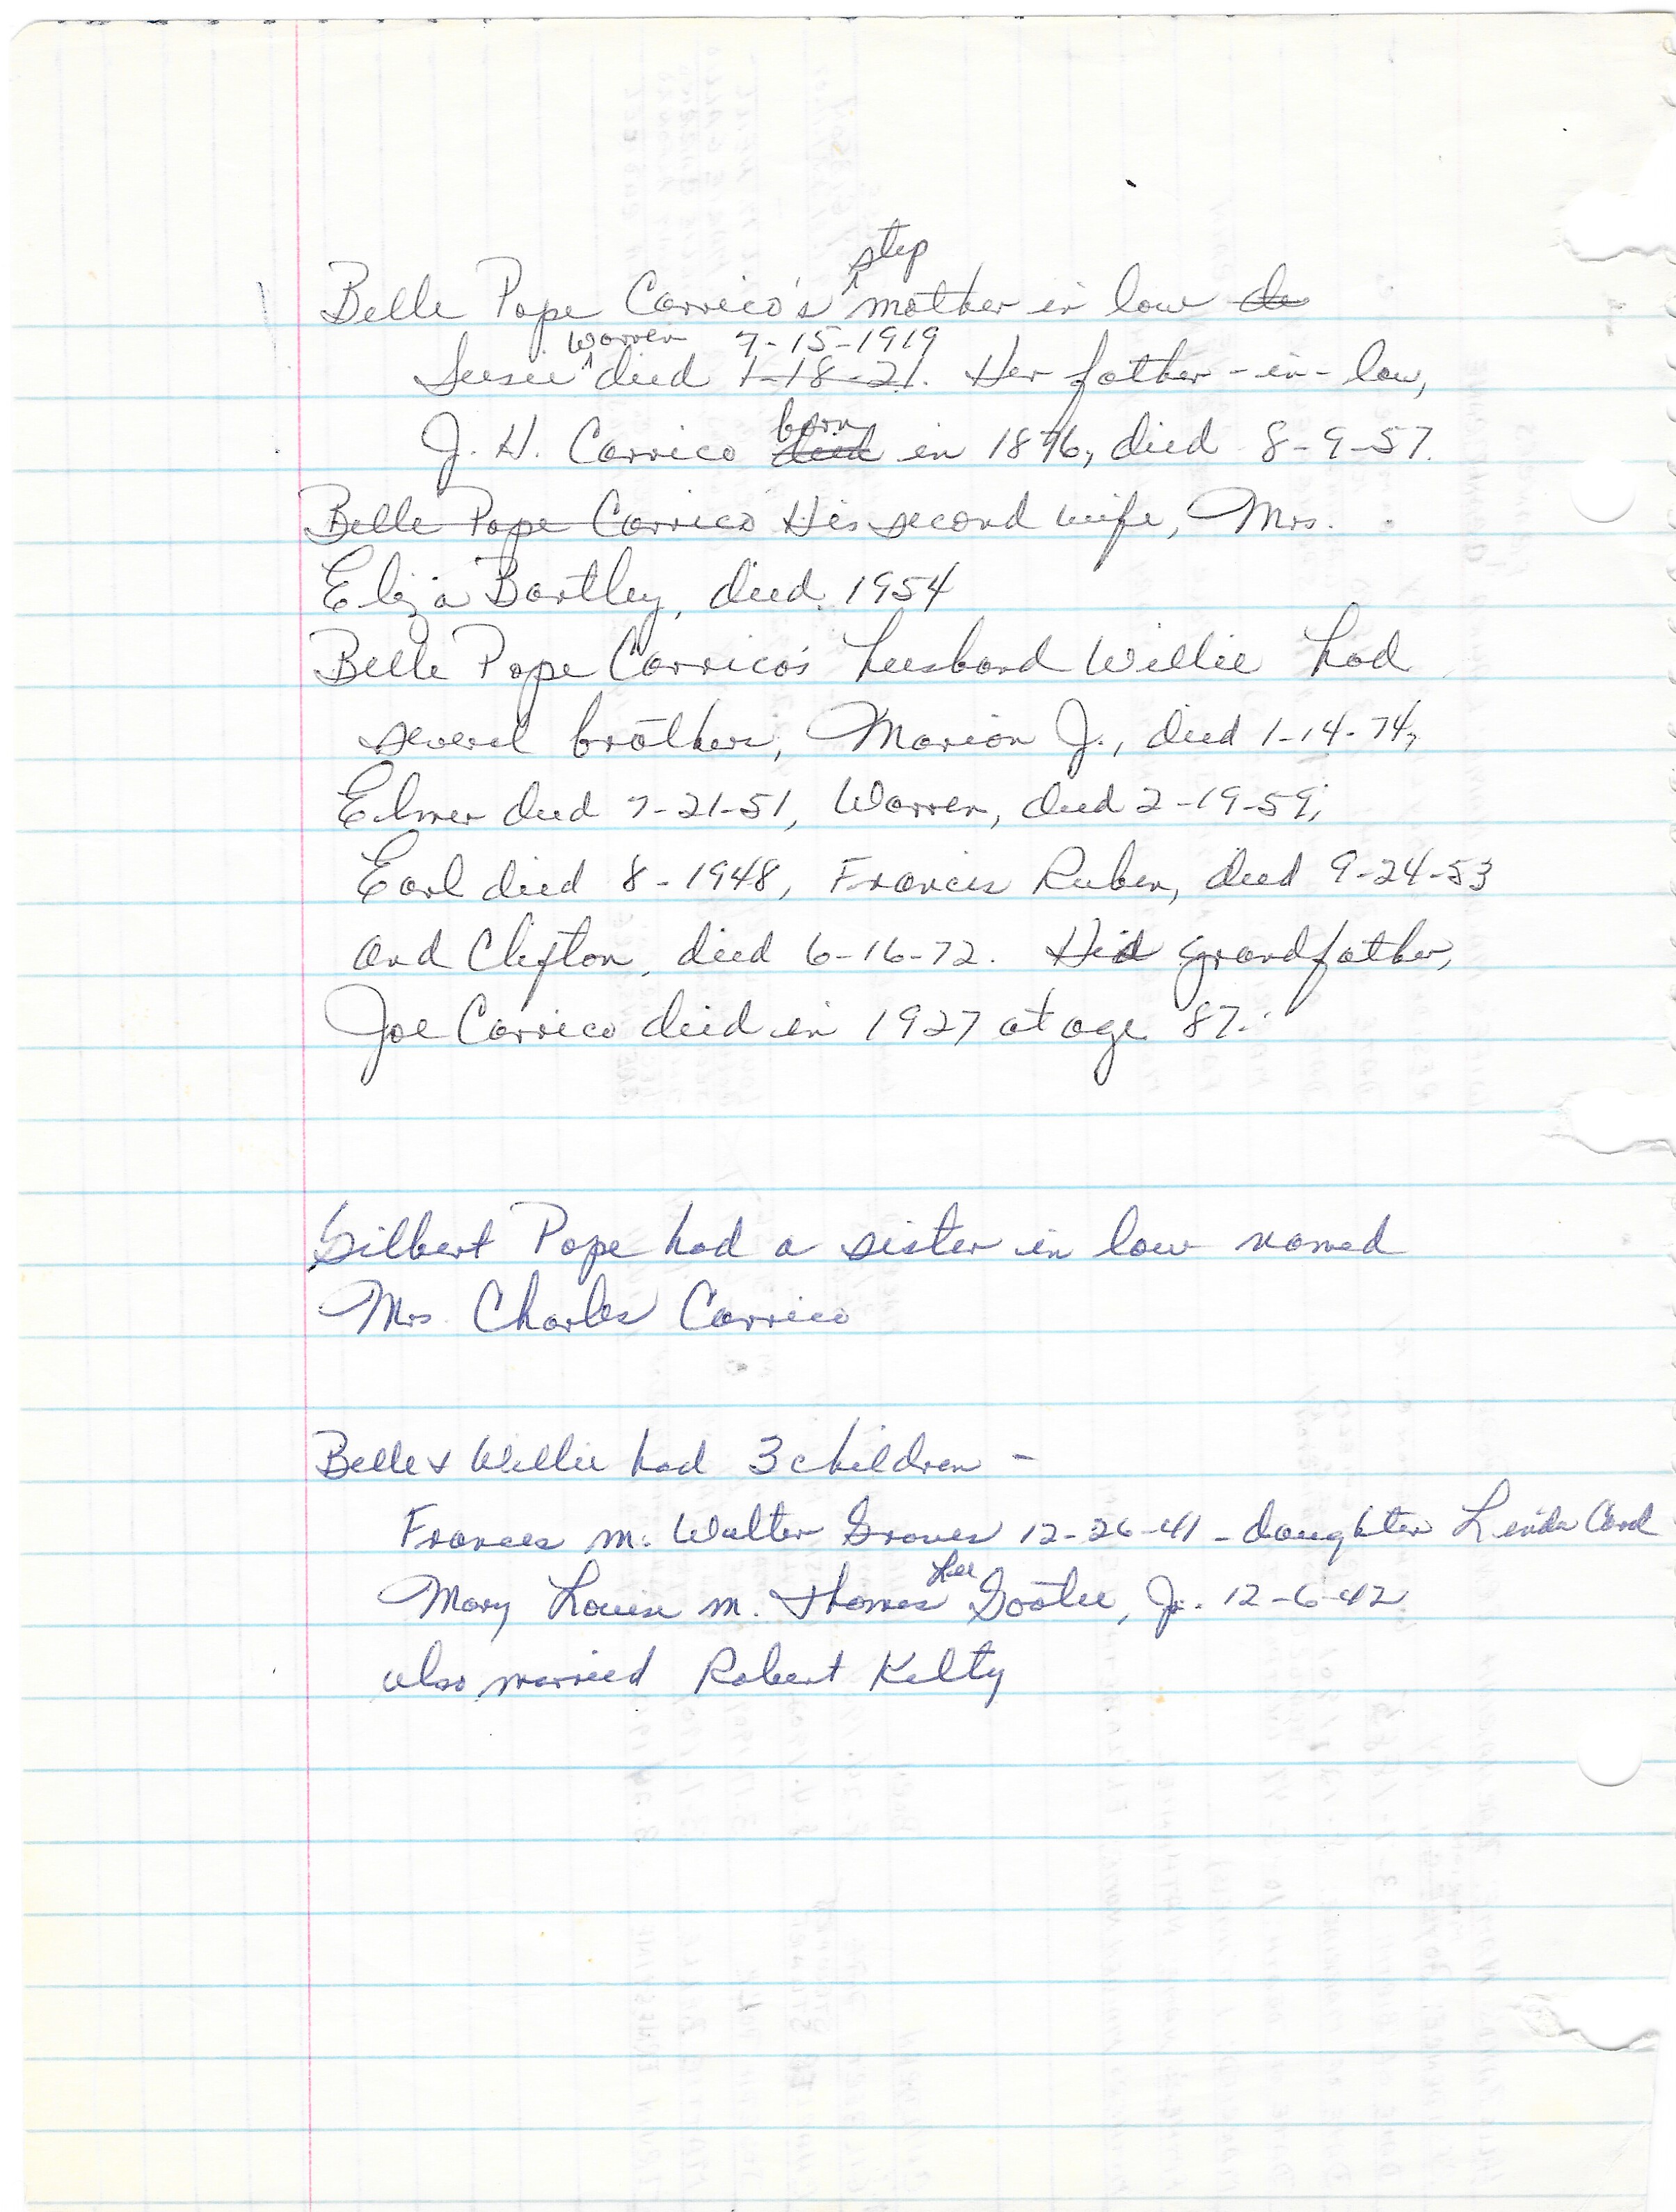 Belle Pope Carrico's step mother in law de
Susie Warren died 7-15-1919 1-18-21. Her father-in-law,
J. H. Carrico born died in 1876, died 8-9-57.
Belle Pope Carrico His second wife, Mrs.
Eliza Bartley, died 1954
Belle Pope Carrico's husband Willie had
several brothers, Marion J., died 1-14-74,
Elmer died 7-21-51, Warren, died 2-19-59,
Earl died 8-1948, Francis Ruben, died 9-24-53
and Clifton, died 6-16-72. His grandfather,
Joe Carrico died in 1927 at age 87.
Gilbert Pope had a sister in law named
Mrs. Charles Carrico
Belle & Willie had 3 children -
Frances m. Walter Graves 12-26-41 - daughter Linda Carol
Mary Louise m. Thomas Lee Gootee, Jr. 12-6-42
also married Robert Kelty